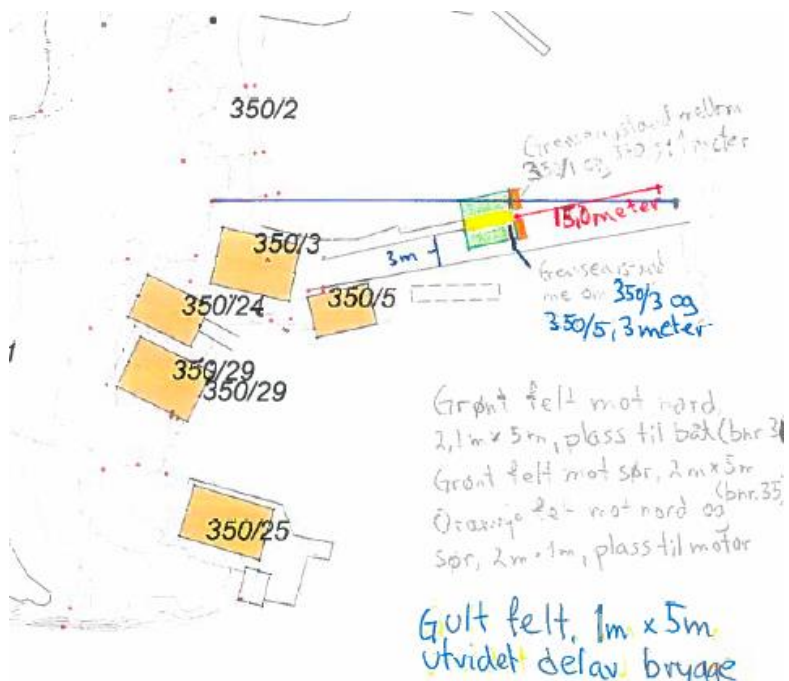 350/2
Grenseavstand mellom
350/1 og 350/3, 1 meter
15,0 meter
350/3
3m
350/24
350/5
Grenseavstand
350/3 og
350/5, 3 meter
350/29
350/29
Grønt felt mot nord
2,1m x 5m, plass til båt (bnr. 3
Grønt felt mot sør, 2m x 5m
(bnr. 35
Oransje felt mot nord og
sør, 2m · 1m, plass til motor
350/25
Gult felt, 1m x 5m
utvidet del av brygge